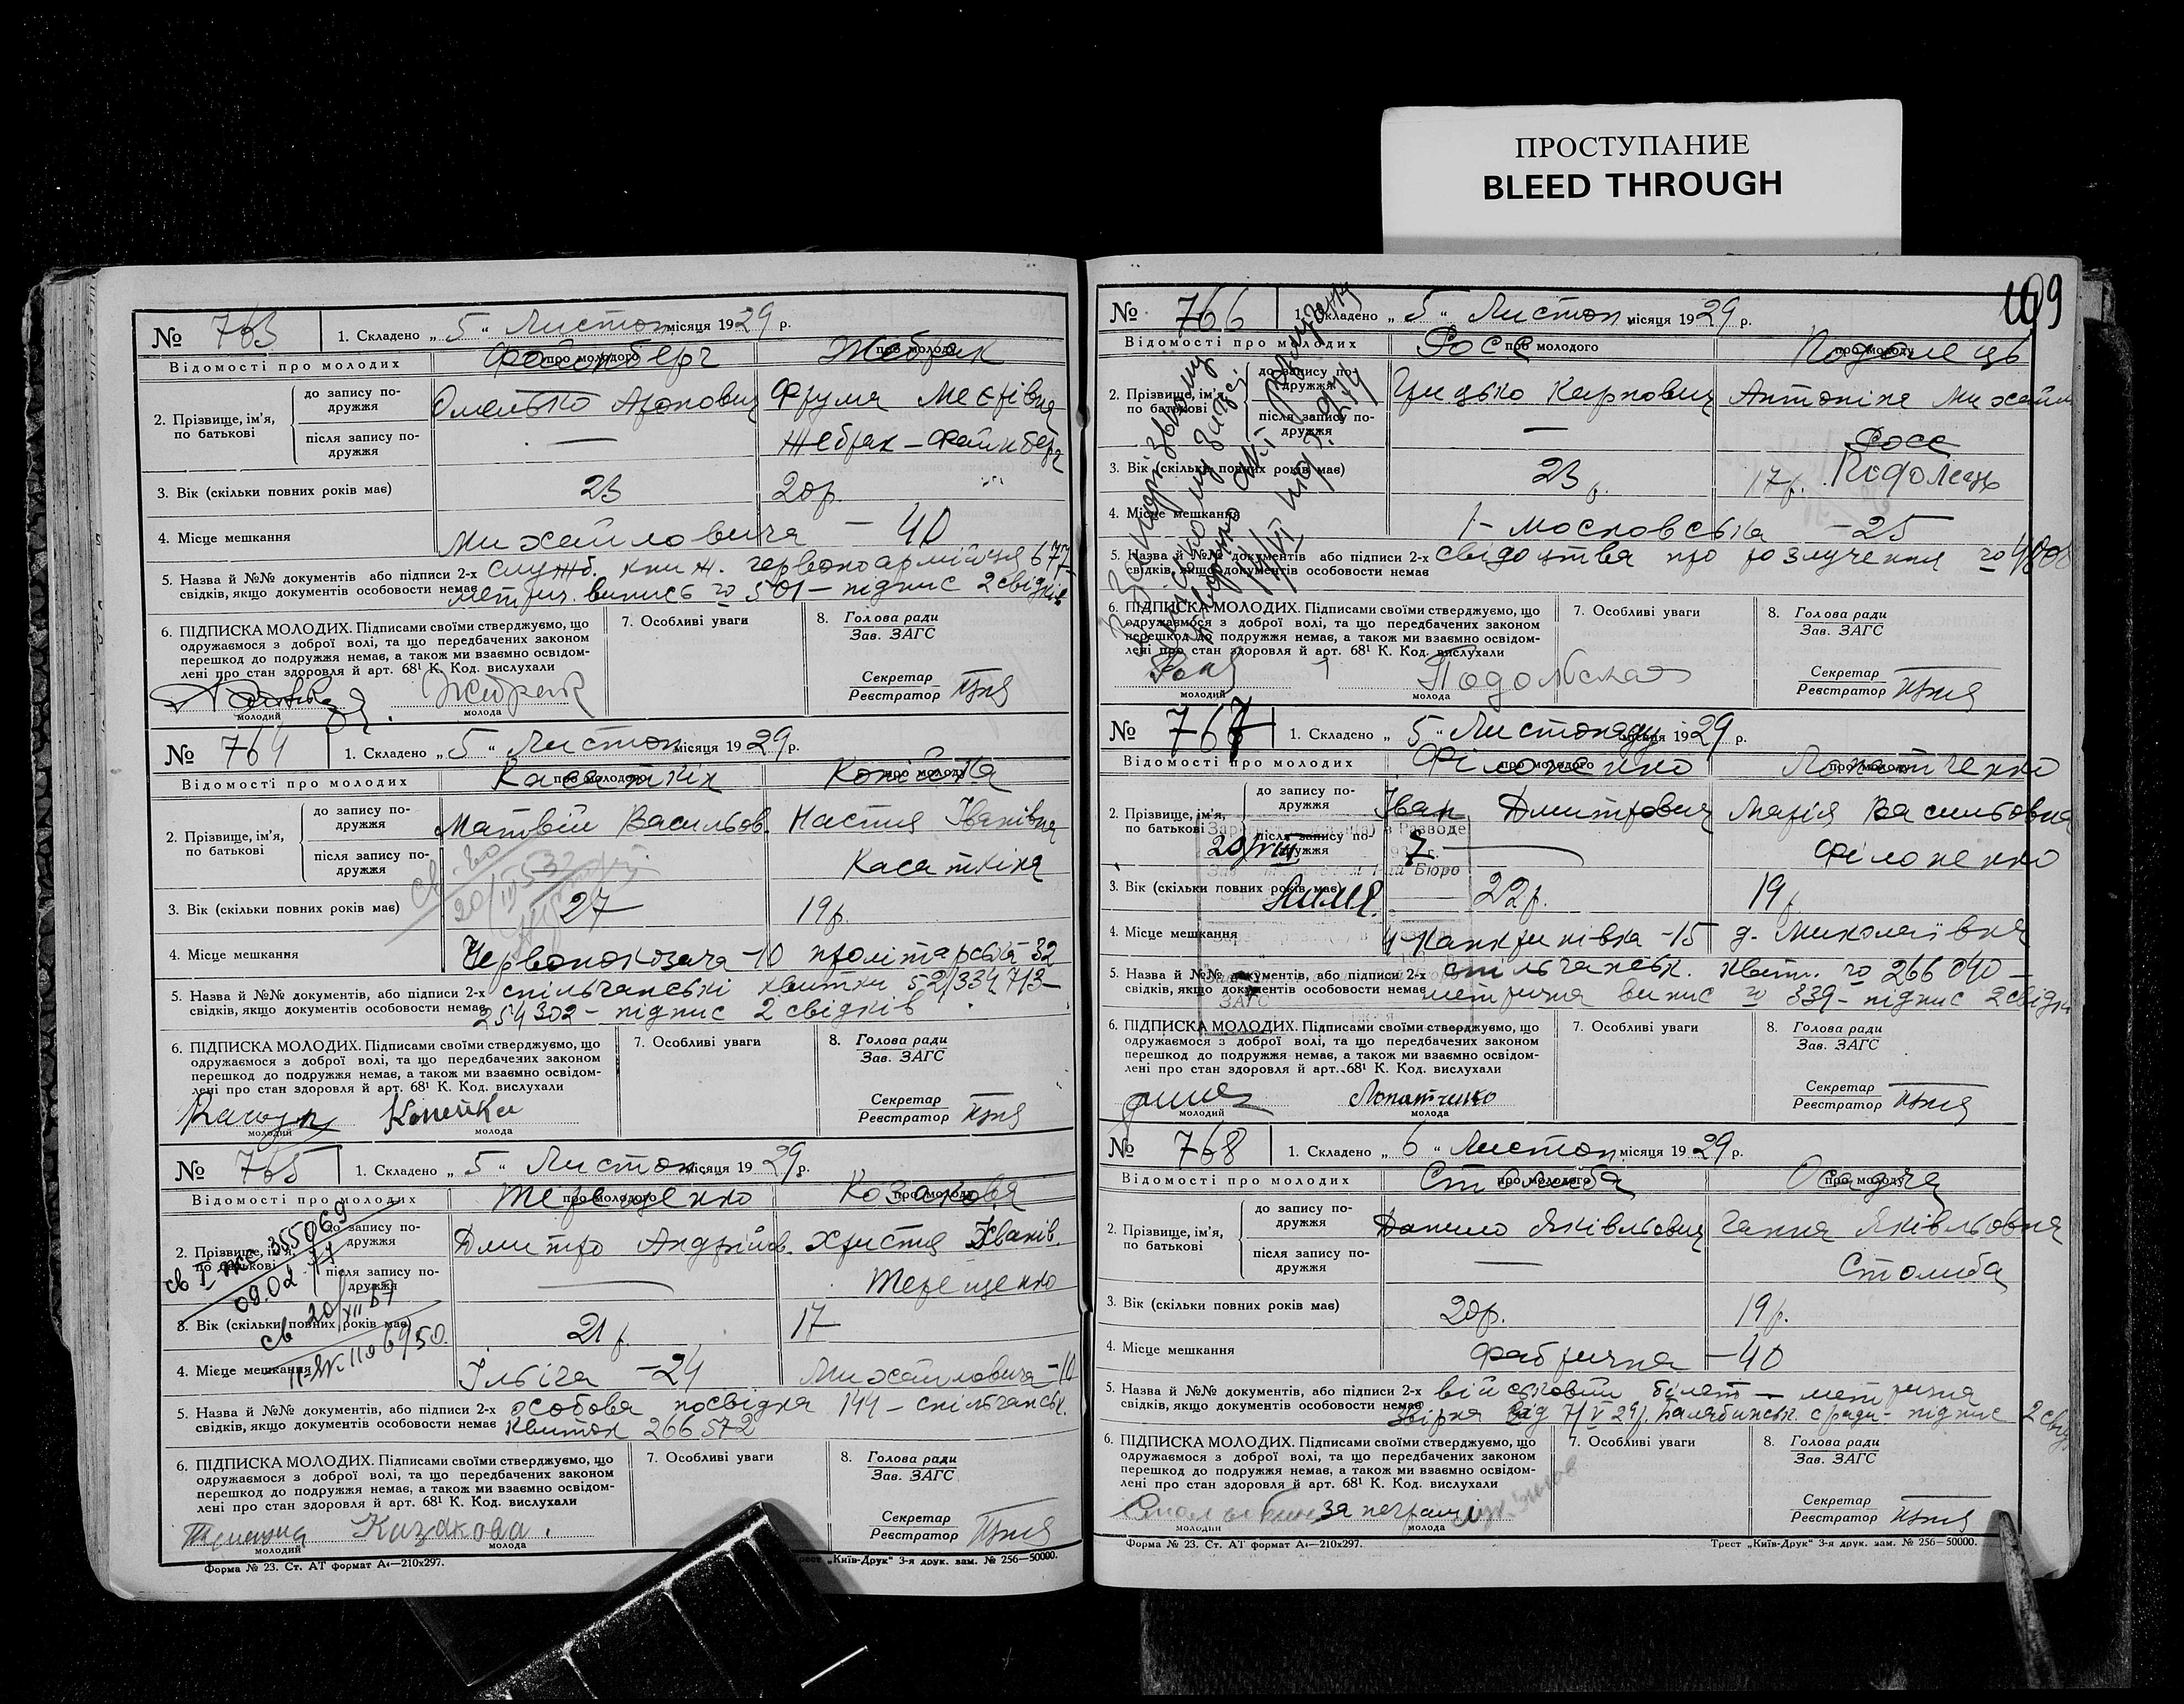 ПРОСТУПАНИЕ
BLEED THROUGH
№ 763
1. Складено „ 5 “ Листоп. місяця 1929 р.
Відомості про молодих
про молодого
про молоду
Файнберг
Жебрак
2. Прізвище, ім'я, по батькові
до запису подружжя
Омелько Аронович
Фрума Меєрівна
після запису подружжя
—
Жебрак-Файнберг
3. Вік (скільки повних років має)
23
20 р.
4. Місце мешкання
Михайловича – 40
5. Назва й №№ документів або підписи 2-х свідків, якщо документів особовости немає
служб. книж. червоноармійця 677–
метрич. випись № 501 – підпис 2 свідків
6. ПІДПИСКА МОЛОДИХ. Підписами своїми стверджуємо, що
одружаємося з доброї волі, та що передбачених законом
перешкод до подружжя немає, а також ми взаємно освідом-
лені про стан здоровля й арт. 68¹ К. Код. вислухали
молодий
Жебрак
молода
7. Особливі уваги
8. Голова ради
Зав. ЗАГС
Секретар
Реєстратор
№ 764
1. Складено „ 5 “ Листоп. місяця 1929 р.
Відомості про молодих
про молодого
про молоду
Касаткін
2. Прізвище, ім'я, по батькові
до запису подружжя
Матвій Васильов.
Настя Іванівна
після запису подружжя
Касаткіна
3. Вік (скільки повних років має)
27
19 р.
4. Місце мешкання
Червонокозача – 10
пролітарська – 32
5. Назва й №№ документів, або підписи 2-х свідків, якщо документів особовости немає
спільчанські квитки 52/334713–
254302 – підпис 2 свідків
6. ПІДПИСКА МОЛОДИХ. Підписами своїми стверджуємо, що
одружаємося з доброї волі, та що передбачених законом
перешкод до подружжя немає, а також ми взаємно освідом-
лені про стан здоровля й арт. 68¹ К. Код. вислухали
молодий
молода
7. Особливі уваги
8. Голова ради
Зав. ЗАГС
Секретар
Реєстратор
№ 765
1. Складено „ 5 “ Листоп. місяця 1929 р.
Відомості про молодих
про молодого
про молоду
Терещенко
Козакова
2. Прізвище, ім'я, по батькові
до запису подружжя
Дмитро Андрійов.
Христя Іванів.
після запису подружжя
—
Терещенко
3. Вік (скільки повних років має)
21 р.
17
4. Місце мешкання
Ільіча – 24
Михайловича – 10
5. Назва й №№ документів, або підписи 2-х свідків, якщо документів особовости немає
особова посвідка 144 – спільчанськ.
квиток 266572
6. ПІДПИСКА МОЛОДИХ. Підписами своїми стверджуємо, що
одружаємося з доброї волі, та що передбачених законом
перешкод до подружжя немає, а також ми взаємно освідом-
лені про стан здоровля й арт. 68¹ К. Код. вислухали
молодий
Казакова.
молода
7. Особливі уваги
8. Голова ради
Зав. ЗАГС
Секретар
Реєстратор
Форма № 23. Ст. АТ формат А₄—210х297.
Трест „Київ-Друк“ 3-я друк. зам. № 256—50000.
№ 766
1. Складено „ 5 “ Листоп. місяця 1929 р.
Відомості про молодих
про молодого
про молоду
Росс
Подолець
2. Прізвище, ім'я, по батькові
до запису подружжя
Грицько Карпович
Антоніна Михайл
після запису подружжя
—
Росс
3. Вік (скільки повних років має)
23 р.
17 р.
Подолець
4. Місце мешкання
1 – Московська – 25
5. Назва й №№ документів або підписи 2-х свідків, якщо документів особовости немає
свідоцтва про розлучення №
6. ПІДПИСКА МОЛОДИХ. Підписами своїми стверджуємо, що
одружаємося з доброї волі, та що передбачених законом
перешкод до подружжя немає, а також ми взаємно освідом-
лені про стан здоровля й арт. 68¹ К. Код. вислухали
молодий
Подольская
молода
7. Особливі уваги
8. Голова ради
Зав. ЗАГС
Секретар
Реєстратор
№ 767
1. Складено „ 5 “ Листопаду місяця 1929 р.
Відомості про молодих
про молодого
про молоду
Філоненко
Лопатченко
2. Прізвище, ім'я, по батькові
до запису подружжя
Іван Дмитрович
Марія Васильовна
після запису подружжя
—
Філоненко
20/VIII
3. Вік (скільки повних років має)
22 р.
19 р.
4. Місце мешкання
4-Канкринівка – 15
д. Миколаївка
5. Назва й №№ документів, або підписи 2-х свідків, якщо документів особовости немає
спільчанськ. квит. № 266040 –
метрична випис № 339 – підпис 2 свідк
6. ПІДПИСКА МОЛОДИХ. Підписами своїми стверджуємо, що
одружаємося з доброї волі, та що передбачених законом
перешкод до подружжя немає, а також ми взаємно освідом-
лені про стан здоровля й арт. 68¹ К. Код. вислухали
молодий
Лопатченко
молода
7. Особливі уваги
8. Голова ради
Зав. ЗАГС
Секретар
Реєстратор
№ 768
1. Складено „ 6 “ Листоп. місяця 1929 р.
Відомості про молодих
про молодого
про молоду
Столиба
Осадча
2. Прізвище, ім'я, по батькові
до запису подружжя
Данило Яківльович
Ганна Яківльовна
після запису подружжя
—
Столиба
3. Вік (скільки повних років має)
20 р.
19 р.
4. Місце мешкання
Фабрична – 40
5. Назва й №№ документів, або підписи 2-х свідків, якщо документів особовости немає
військовий білет – метрична
від 7/V 29 р. с ради – підпис 2 свід
6. ПІДПИСКА МОЛОДИХ. Підписами своїми стверджуємо, що
одружаємося з доброї волі, та що передбачених законом
перешкод до подружжя немає, а також ми взаємно освідом-
лені про стан здоровля й арт. 68¹ К. Код. вислухали
молодий
молода
7. Особливі уваги
8. Голова ради
Зав. ЗАГС
Секретар
Реєстратор
Форма № 23. Ст. АТ формат А₄—210х297.
Трест „Київ-Друк“ 3-я друк. зам. № 256—50000.